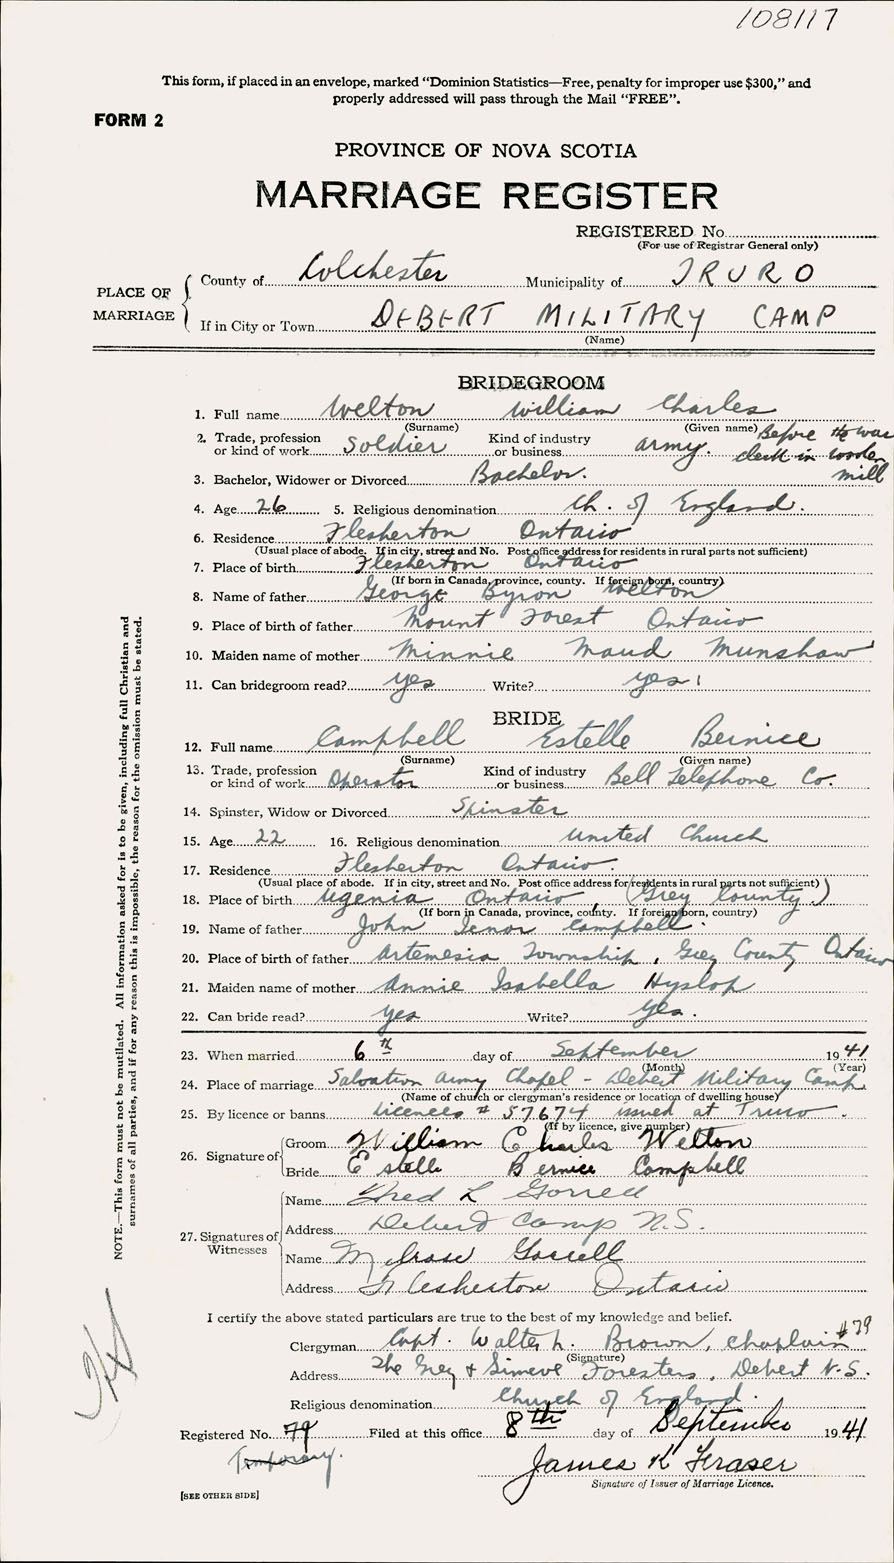 108117
This form, if placed in an envelope, marked “Dominion Statistics—Free, penalty for improper use $300,” and
properly addressed will pass through the Mail “FREE”.
FORM 2
PROVINCE OF NOVA SCOTIA
MARRIAGE REGISTER
REGISTERED No.
(For use of Registrar General only)
PLACE OF MARRIAGE
County of Colchester Municipality of TRURO
If in City or Town DEBERT MILITARY CAMP
(Name)
BRIDEGROOM
1. Full name Welton William Charles
(Surname) (Given name) Before He was
2. Trade, profession or kind of work Soldier Kind of industry or business army. clerk in woolen
mill
3. Bachelor, Widower or Divorced Bachelor.
4. Age 26 5. Religious denomination Ch. of England.
6. Residence Flesherton Ontario
(Usual place of abode. If in city, street and No. Post office address for residents in rural parts not sufficient)
7. Place of birth Flesherton Ontario
(If born in Canada, province, county. If foreign born, country)
8. Name of father George Byron Welton
9. Place of birth of father Mount Forest Ontario
10. Maiden name of mother Minnie Maud Munshaw
11. Can bridegroom read? yes Write? yes!
BRIDE
12. Full name Campbell Estelle Bernice
(Surname) (Given name)
13. Trade, profession or kind of work Operator Kind of industry or business Bell Telephone Co.
14. Spinster, Widow or Divorced Spinster
15. Age 22 16. Religious denomination United Church
17. Residence Flesherton Ontario.
(Usual place of abode. If in city, street and No. Post office address for residents in rural parts not sufficient)
18. Place of birth Ugenia Ontario (Grey County.)
(If born in Canada, province, county. If foreign born, country)
19. Name of father John Campbell.
20. Place of birth of father Artemesia Township, Grey County Ontario
21. Maiden name of mother Annie Isabella Hyslop
22. Can bride read? yes Write? yes.
23. When married 6th day of September 1941
(Month) (Year)
24. Place of marriage Salvation Army Chapel - Debert Military Camp
(Name of church or clergyman's residence or location of dwelling house)
25. By licence or banns Licences # 57674 issued at Truro.
(If by licence, give number)
26. Signature of Groom William Charles Welton
Bride Estelle Bernice Campbell
27. Signatures of Witnesses
Name Fred L Gorrell
Address Debert Camp N.S.
Name Gorrell
Address Flesherton Ontario
I certify the above stated particulars are true to the best of my knowledge and belief.
Clergyman Capt. Walter L. Brown, chaplain #79
(Signature)
Address The Grey & Simcoe Foresters, Debert N.S.
Religious denomination Church of England.
Registered No. 79 Filed at this office 8th day of September 1941
Temporary.
James K Fraser
Signature of Issuer of Marriage Licence.
[SEE OTHER SIDE]
NOTE.—This form must not be mutilated. All information asked for is to be given, including full Christian and
surnames of all parties, and if for any reason this is impossible, the reason for the omission must be stated.